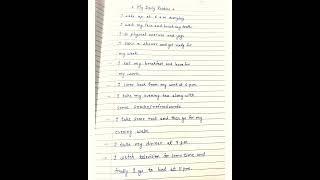 * My Daily Routine *
I wake up at 6 a.m everyday
I wash my face and brush my teeth
I do physical exercise and yoga
I take a shower and get ready for
my work.
I eat my breakfast and leave for
my work.
I come back from my work at 6 p.m.
- I take my evening tea along with
some snacks/refreshments.
- I take some rest and then go for my
evening walk.
- I take my dinner at 9 p.m.
- I watch television for some time and
finally I go to bed at 11 p.m.